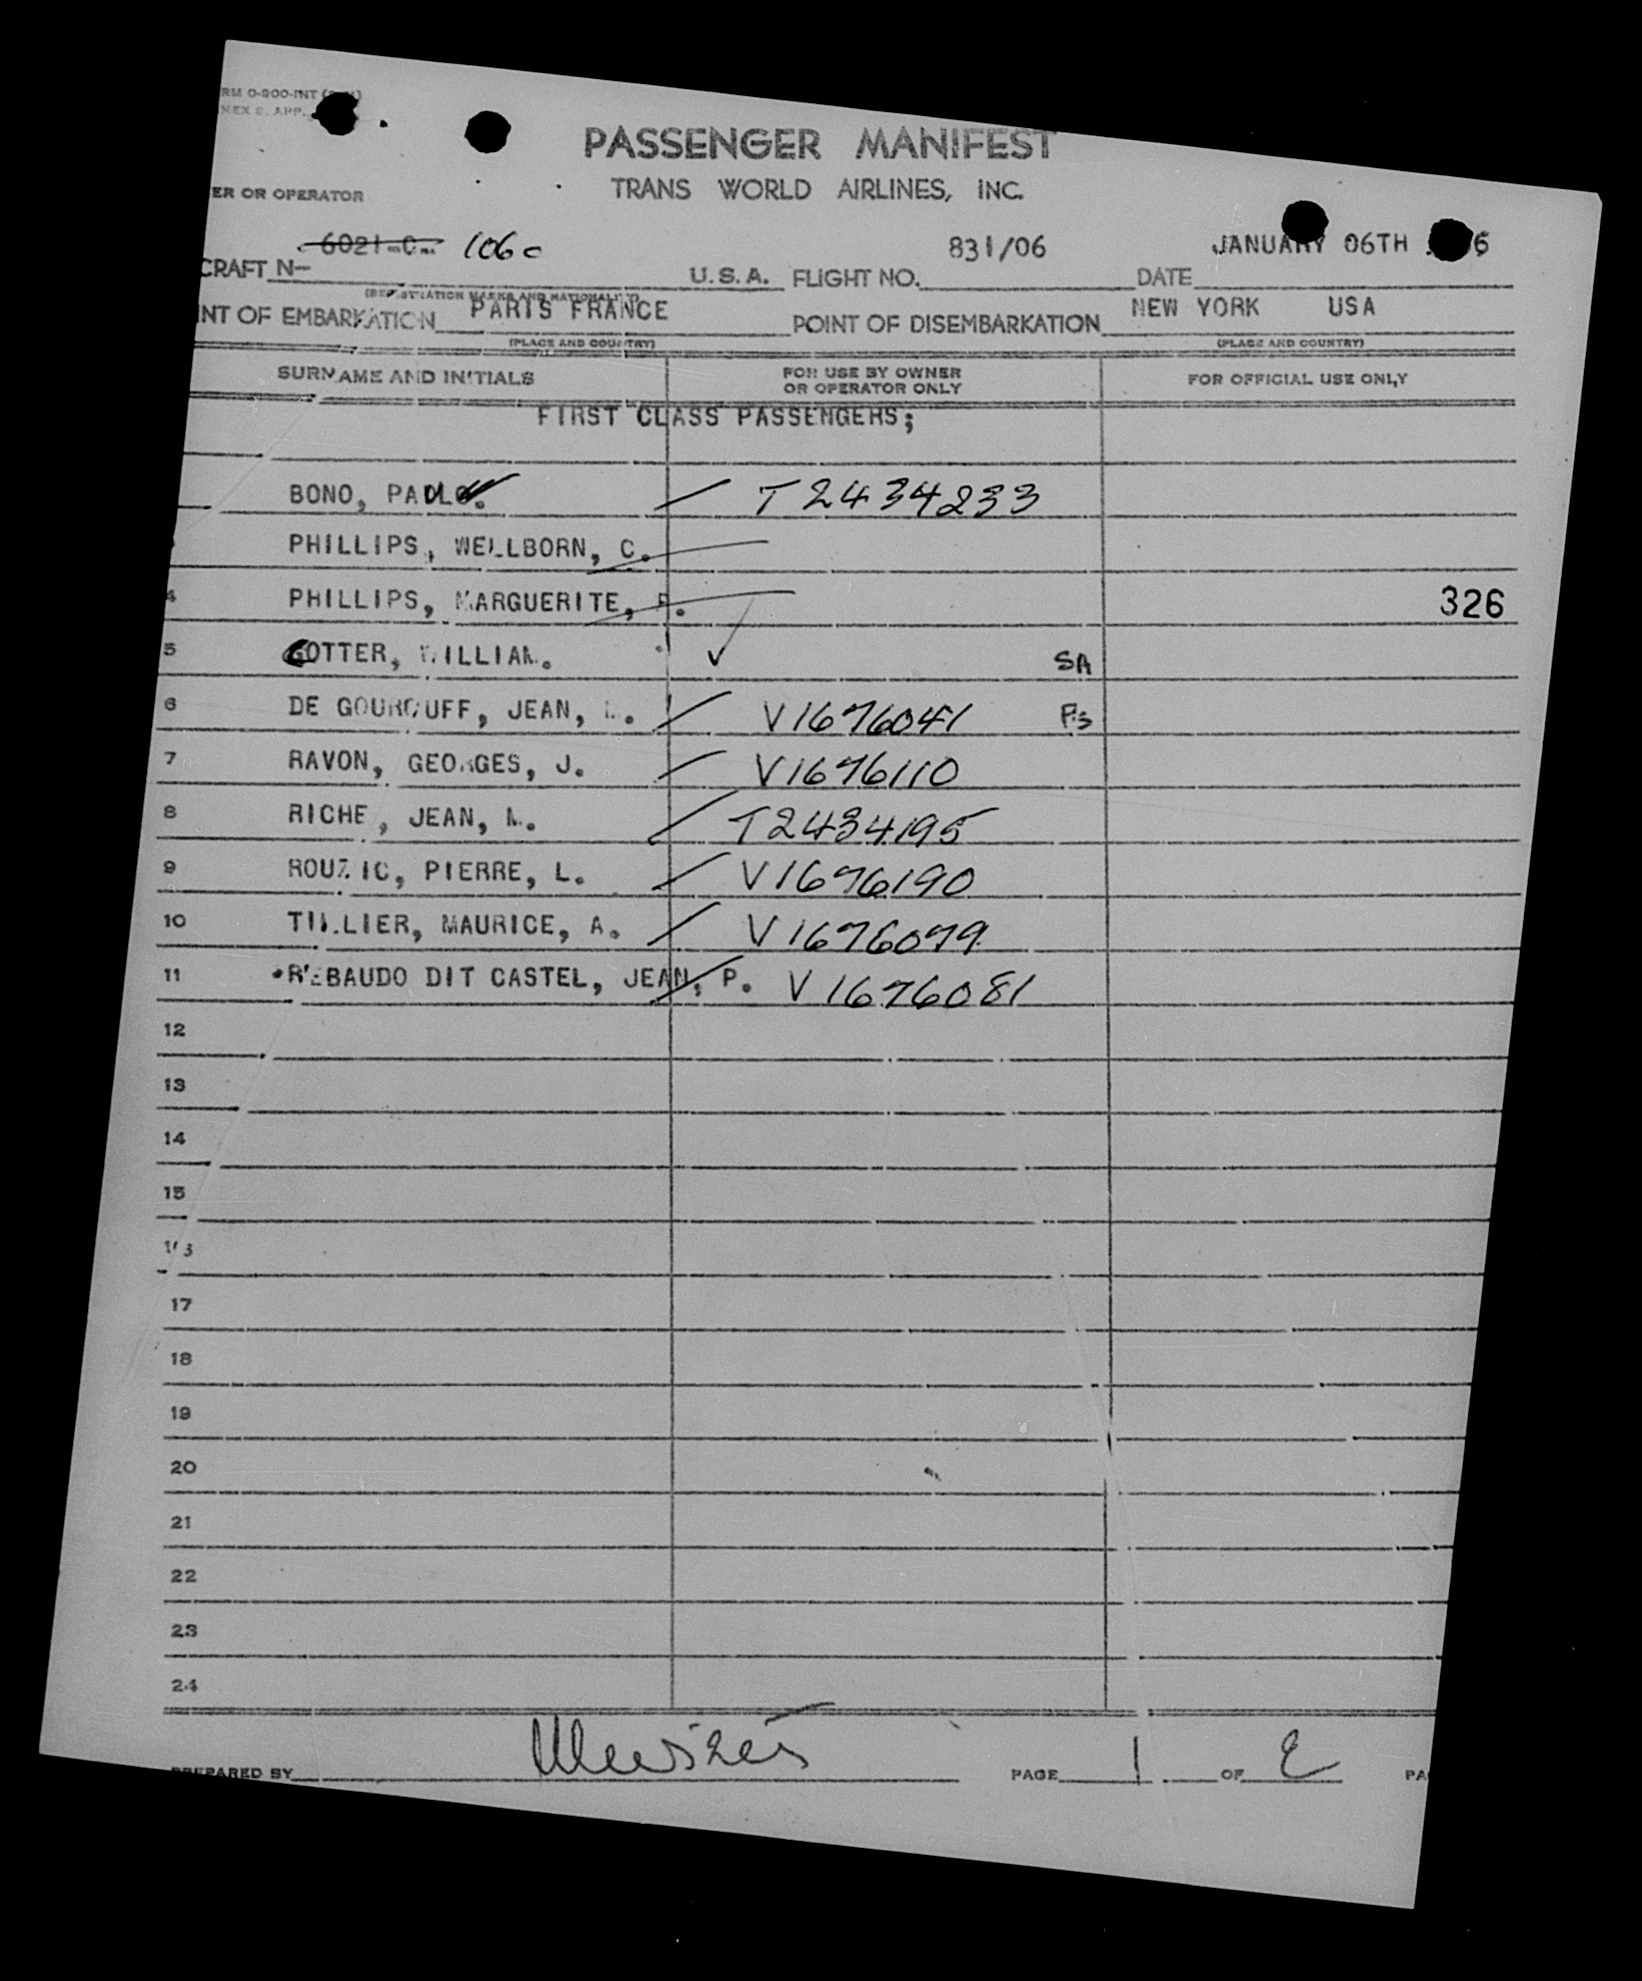 RM O-800-INT
NEX 2. APP.
PASSENGER MANIFEST
ER OR OPERATOR
TRANS WORLD AIRLINES, INC.
6021-C 106c
831/06
JANUARY 06TH
CRAFT N-
U.S.A. FLIGHT NO.
DATE
(REGISTRATION MARKS AND NATIONALITY)
PARIS FRANCE
NEW YORK USA
INT OF EMBARKATION
POINT OF DISEMBARKATION
(PLACE AND COUNTRY)
(PLACE AND COUNTRY)
SURNAME AND INITIALS
FOR USE BY OWNER
OR OPERATOR ONLY
FOR OFFICIAL USE ONLY
FIRST CLASS PASSENGERS;
BONO, PAOLO. T2434233
PHILLIPS, WELLBORN, C.
4 PHILLIPS, MARGUERITE, 326
5 COTTER, WILLIAM. SA
6 DE GOUROUFF, JEAN, V1676041
7 RAVON, GEORGES, J. V1676110
8 RICHE, JEAN, M. T2434195
9 ROUZIC, PIERRE, L. V1676190
10 TILLIER, MAURICE, A. V1676079
11 REBAUDO DIT CASTEL, JEAN, P. V1676081
12
13
14
15
16
17
18
19
20
21
22
23
24
PREPARED BY
PAGE 1 OF 2 PA